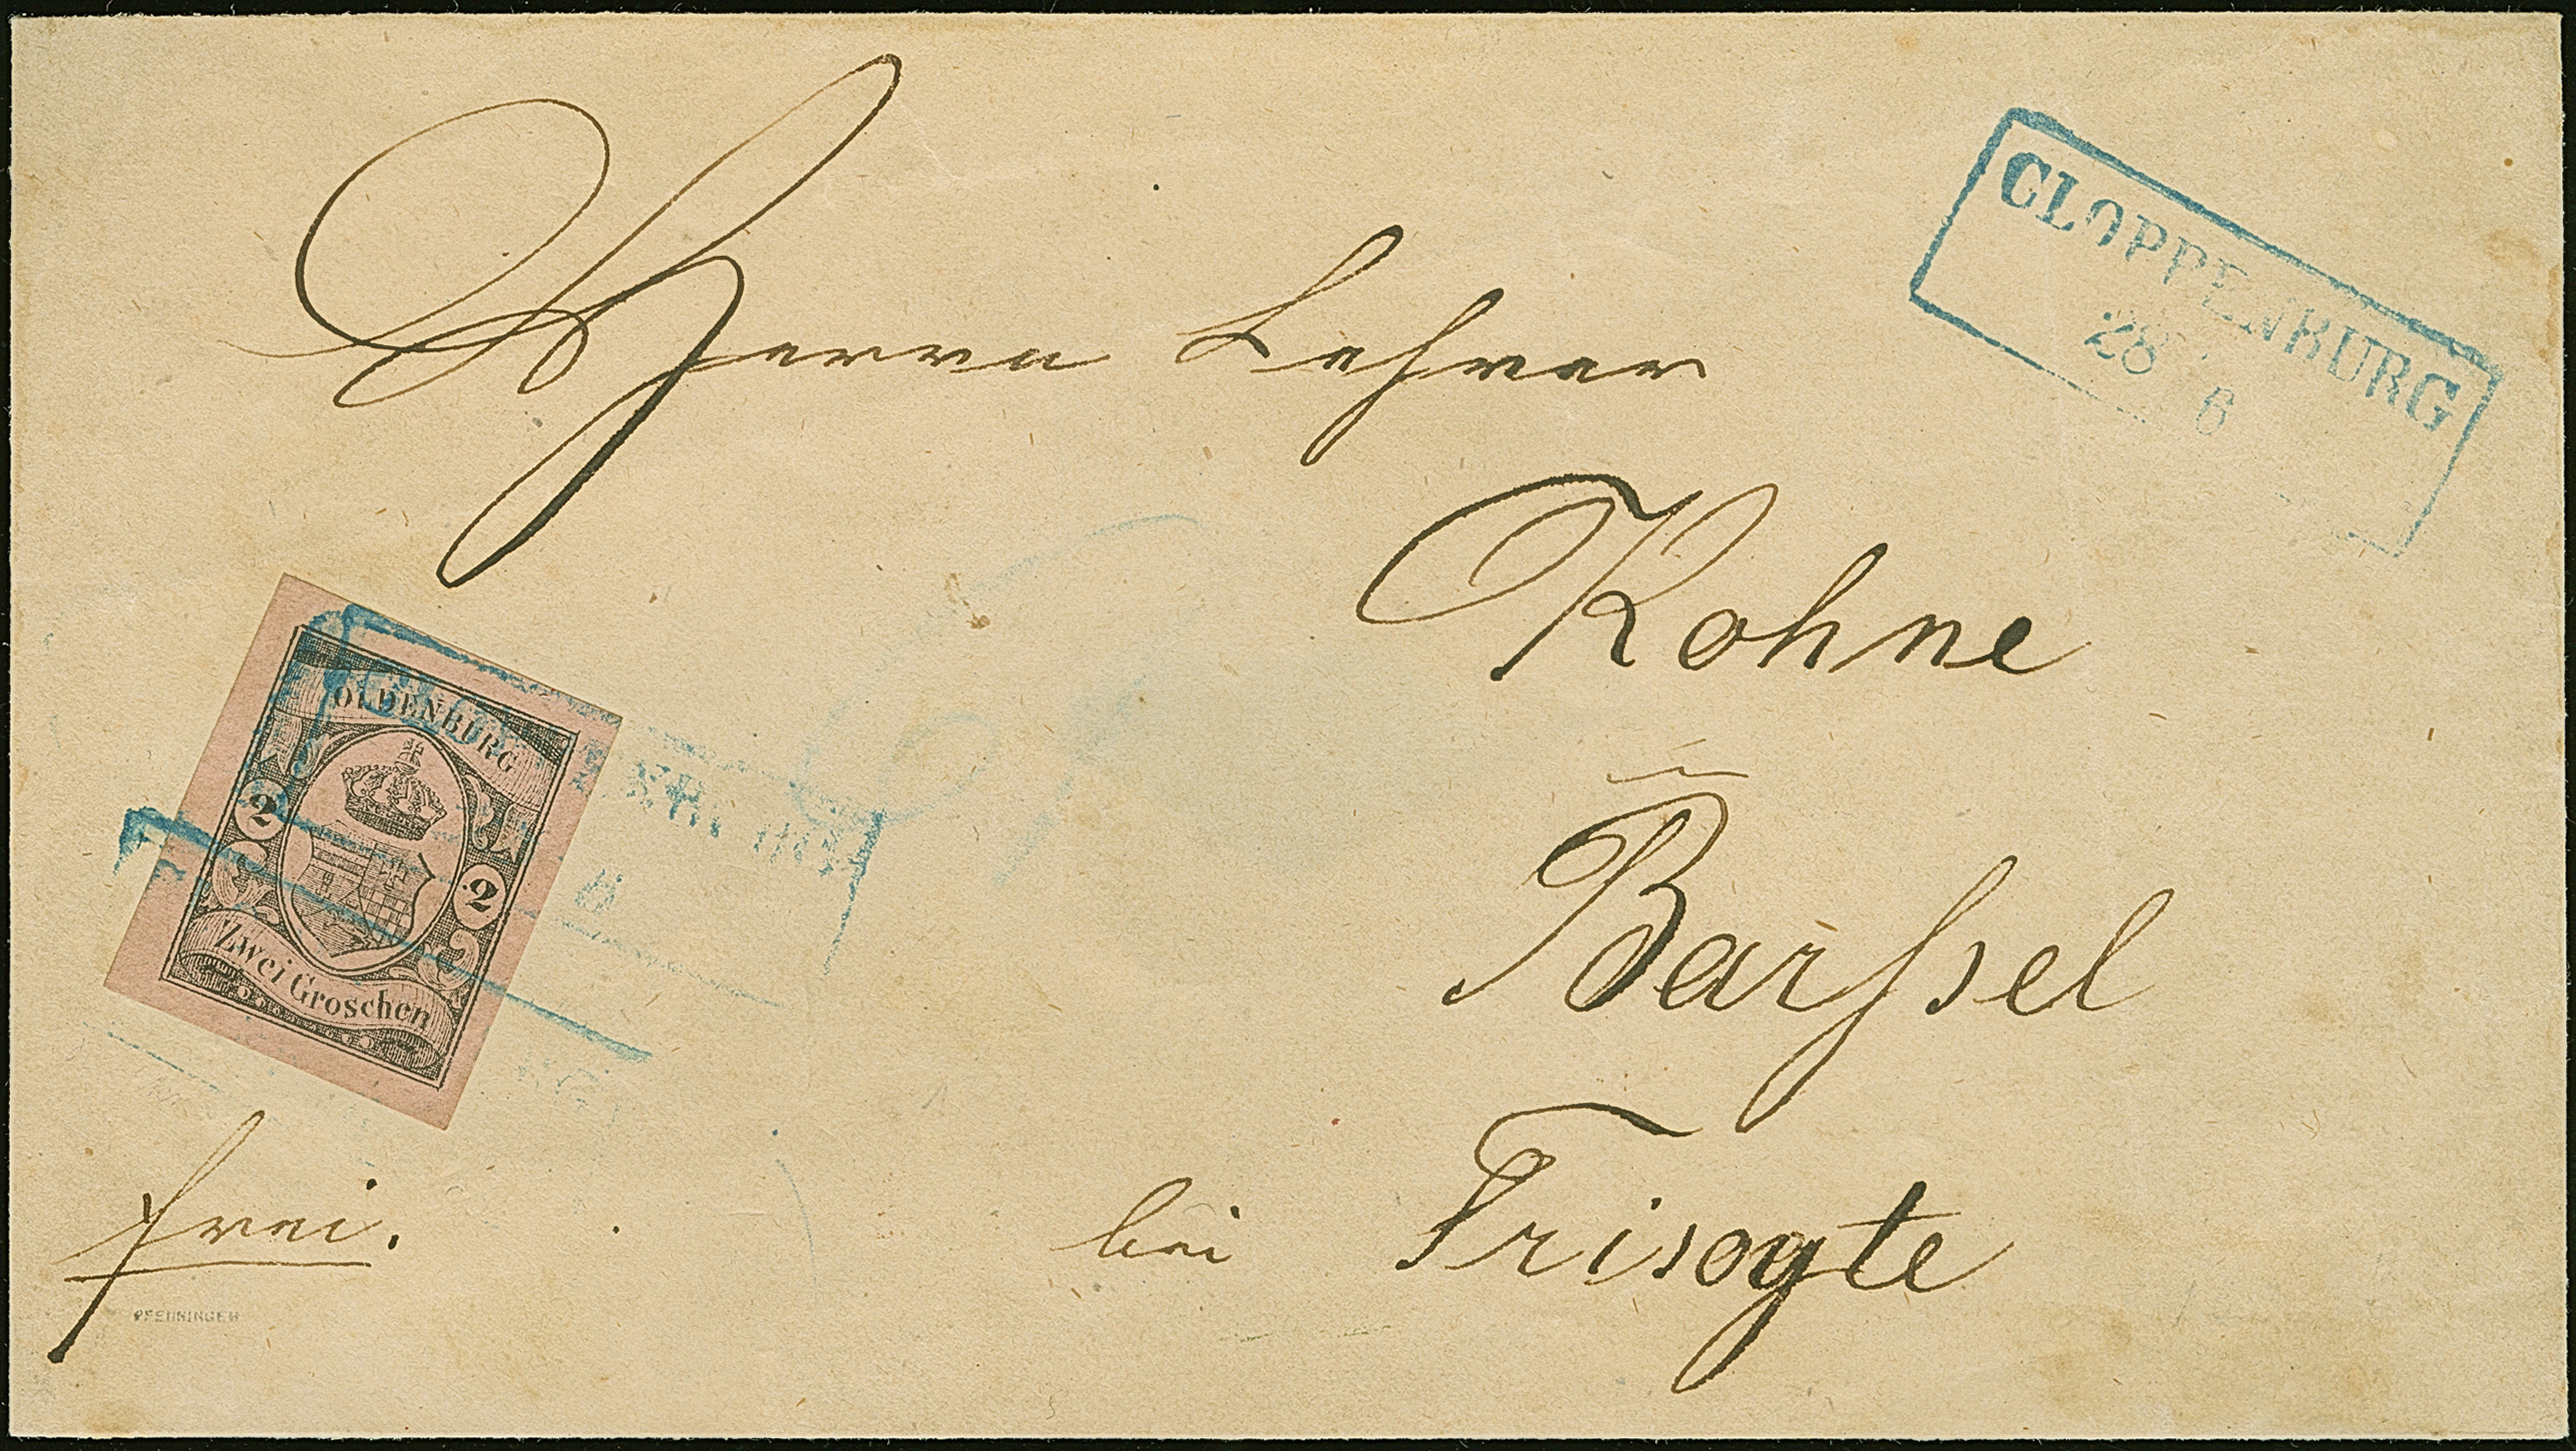 Herrn Lehrer
CLOPPENBURG
28 6
Kohne
in
Barssel
bei Frisoyte
OLDENBURG
2 2
Zwei Groschen
frei.
PFENNINGER